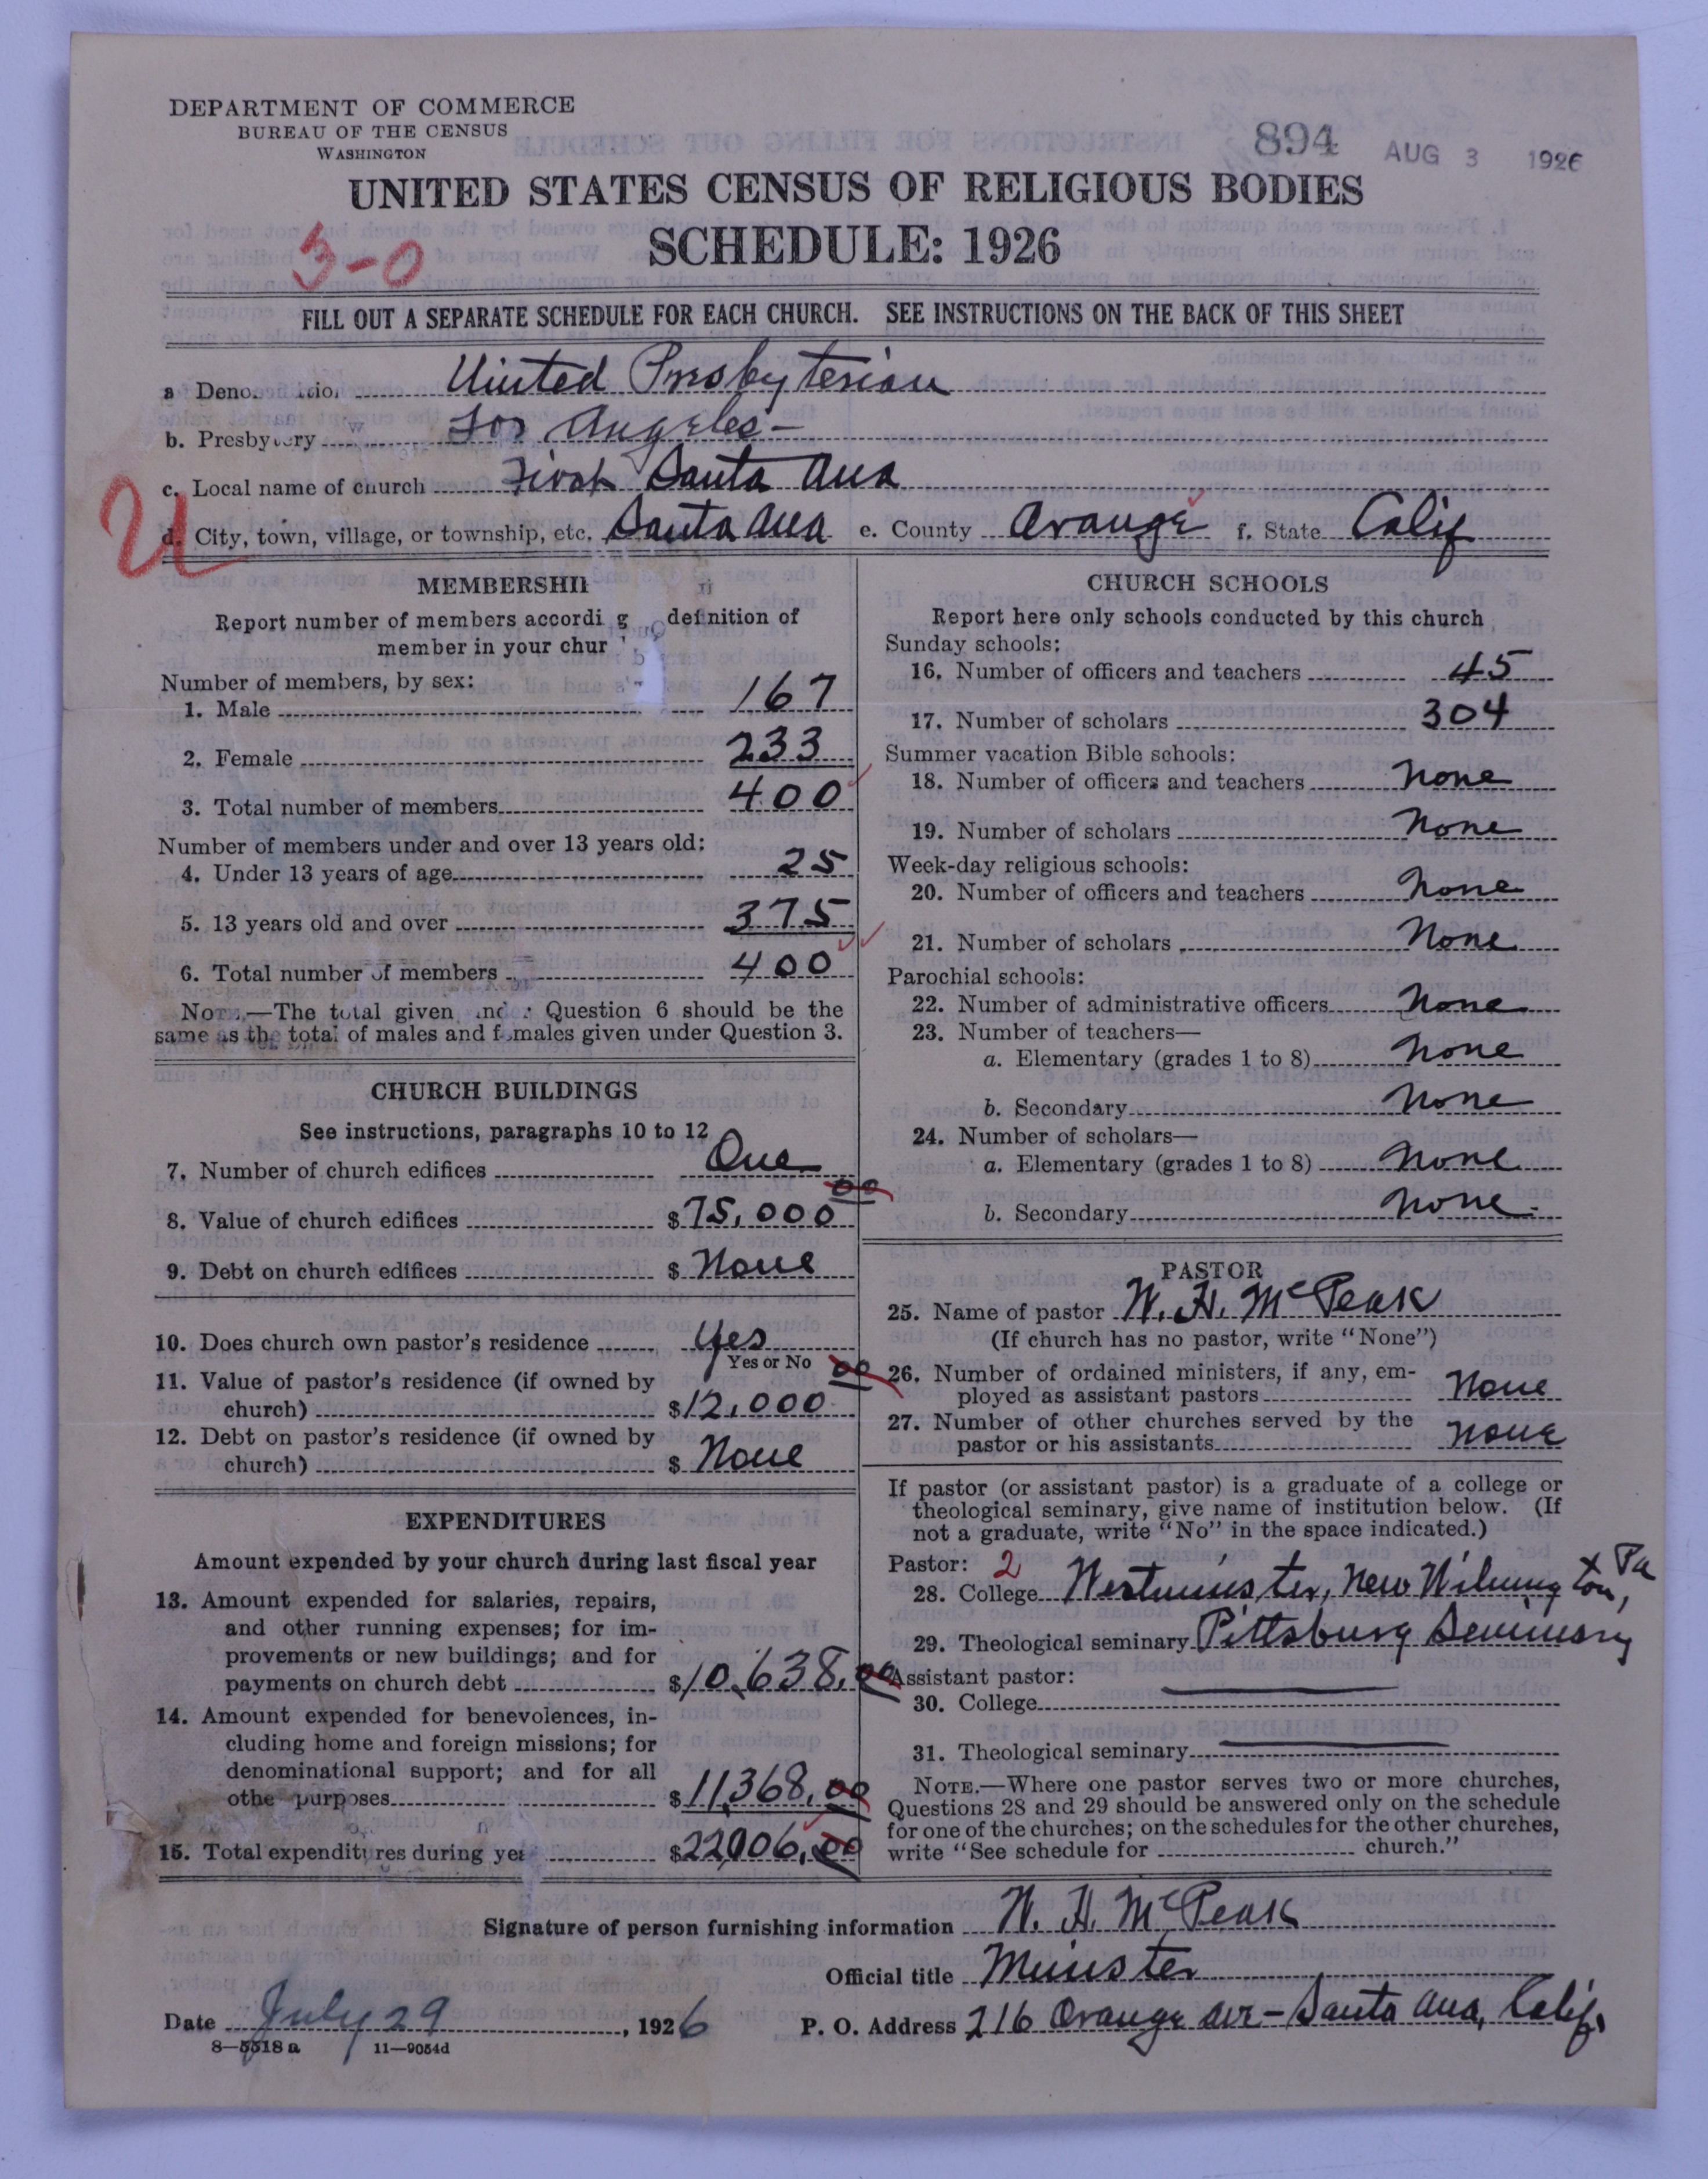 DEPARTMENT OF COMMERCE
BUREAU OF THE CENSUS
WASHINGTON
894 AUG 3 1926
UNITED STATES CENSUS OF RELIGIOUS BODIES
3-0
SCHEDULE: 1926
FILL OUT A SEPARATE SCHEDULE FOR EACH CHURCH. SEE INSTRUCTIONS ON THE BACK OF THIS SHEET
a United Presbyterian
b. Presbytery Los Angeles-
c. Local name of church First Santa Ana
U
d. City, town, village, or township, etc. Santa Ana e. County Orange f. State Calif
MEMBERSHI
Report number of members accordi g definition of
member in your chur
Number of members, by sex:
1. Male 167
2. Female 233
3. Total number of members 400
Number of members under and over 13 years old:
4. Under 13 years of age 25
5. 13 years old and over 375
6. Total number of members 400
NOTE.—The total given Question 6 should be the
same as the total of males and females given under Question 3.
CHURCH BUILDINGS
See instructions, paragraphs 10 to 12
7. Number of church edifices One
8. Value of church edifices $75,000 00
9. Debt on church edifices $ None
10. Does church own pastor's residence yes
Yes or No
11. Value of pastor's residence (if owned by
church) $12,000 00
12. Debt on pastor's residence (if owned by
church) $ None
EXPENDITURES
Amount expended by your church during last fiscal year
13. Amount expended for salaries, repairs,
and other running expenses; for im-
provements or new buildings; and for
payments on church debt $10,638.00
14. Amount expended for benevolences, in-
cluding home and foreign missions; for
denominational support; and for all
othe purposes $11,368.00
15. Total expenditures during yea $22006.00
CHURCH SCHOOLS
Report here only schools conducted by this church
Sunday schools:
16. Number of officers and teachers 45
17. Number of scholars 304
Summer vacation Bible schools:
18. Number of officers and teachers None
19. Number of scholars None
Week-day religious schools:
20. Number of officers and teachers None
21. Number of scholars None
Parochial schools:
22. Number of administrative officers None
23. Number of teachers—
a. Elementary (grades 1 to 8) None
b. Secondary None
24. Number of scholars—
a. Elementary (grades 1 to 8) None
b. Secondary None.
PASTOR
25. Name of pastor W. H. McPeak
(If church has no pastor, write "None")
26. Number of ordained ministers, if any, em-
ployed as assistant pastors None
27. Number of other churches served by the
pastor or his assistants None
If pastor (or assistant pastor) is a graduate of a college or
theological seminary, give name of institution below. (If
not a graduate, write "No" in the space indicated.)
Pastor: 2
28. College Westminster, New Wilmington, Pa
29. Theological seminary Pittsburg Seminary
Assistant pastor:
30. College
31. Theological seminary
NOTE.—Where one pastor serves two or more churches,
Questions 28 and 29 should be answered only on the schedule
for one of the churches; on the schedules for the other churches,
write "See schedule for church."
Signature of person furnishing information W. H. McPeak
Official title Minister
Date July 29, 1926 P. O. Address 216 Orange Ave-Santa Ana, Calif.
8—5518 a 11—9054d